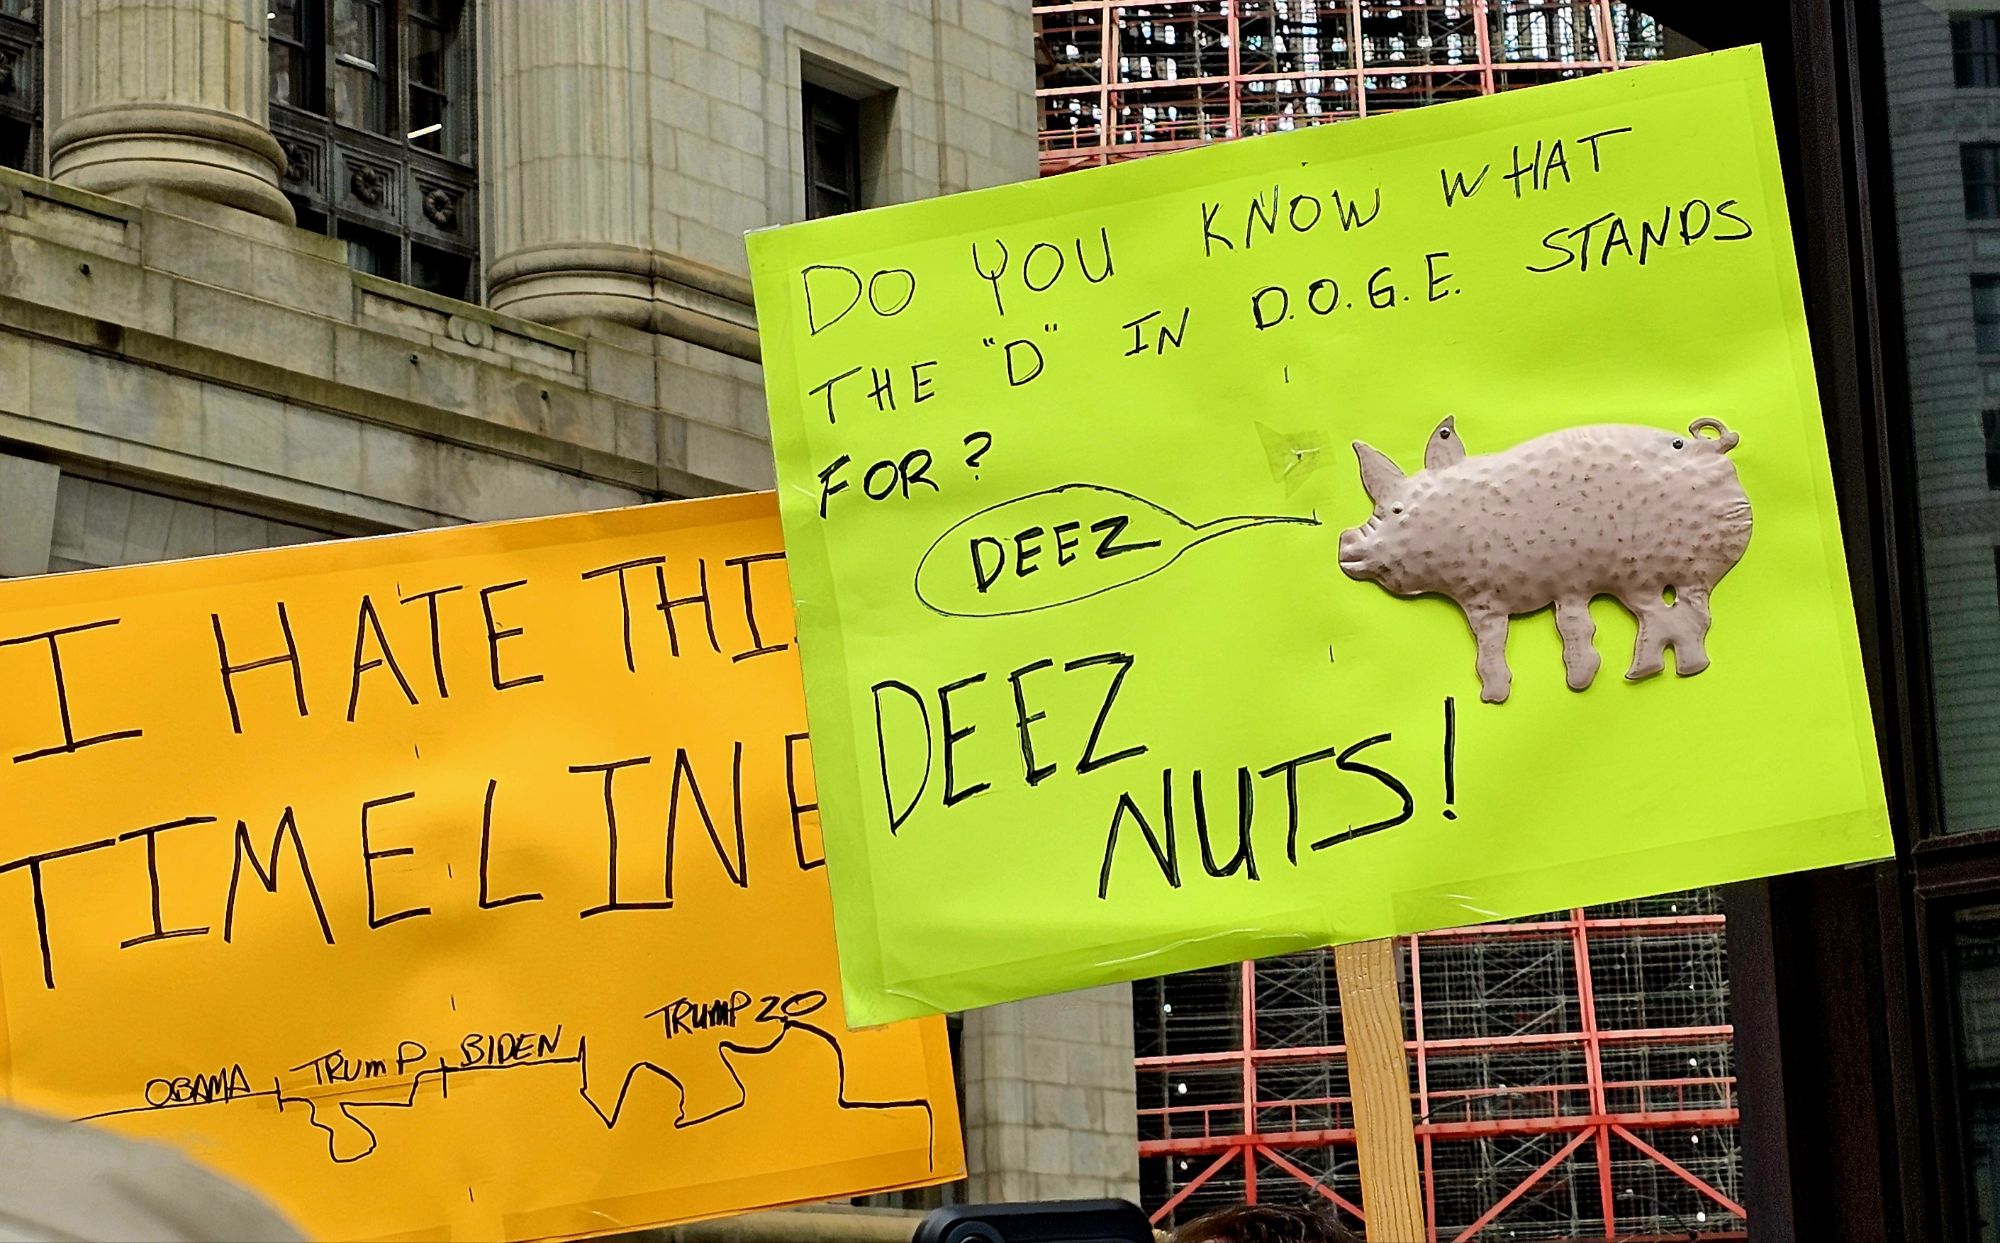 I HATE THI
TIMELINE
OBAMA TRUMP BIDEN TRUMP 2.0
DO YOU KNOW WHAT
THE "D" IN D.O.G.E. STANDS
FOR?
DEEZ
DEEZ
NUTS!